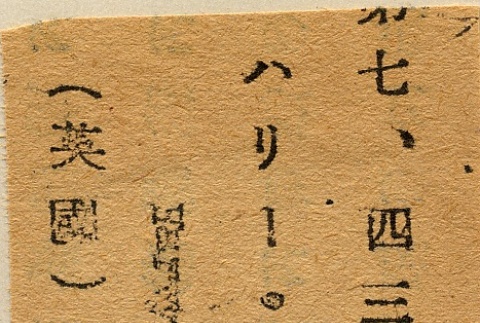 七、四三
ハリー。
（英國）